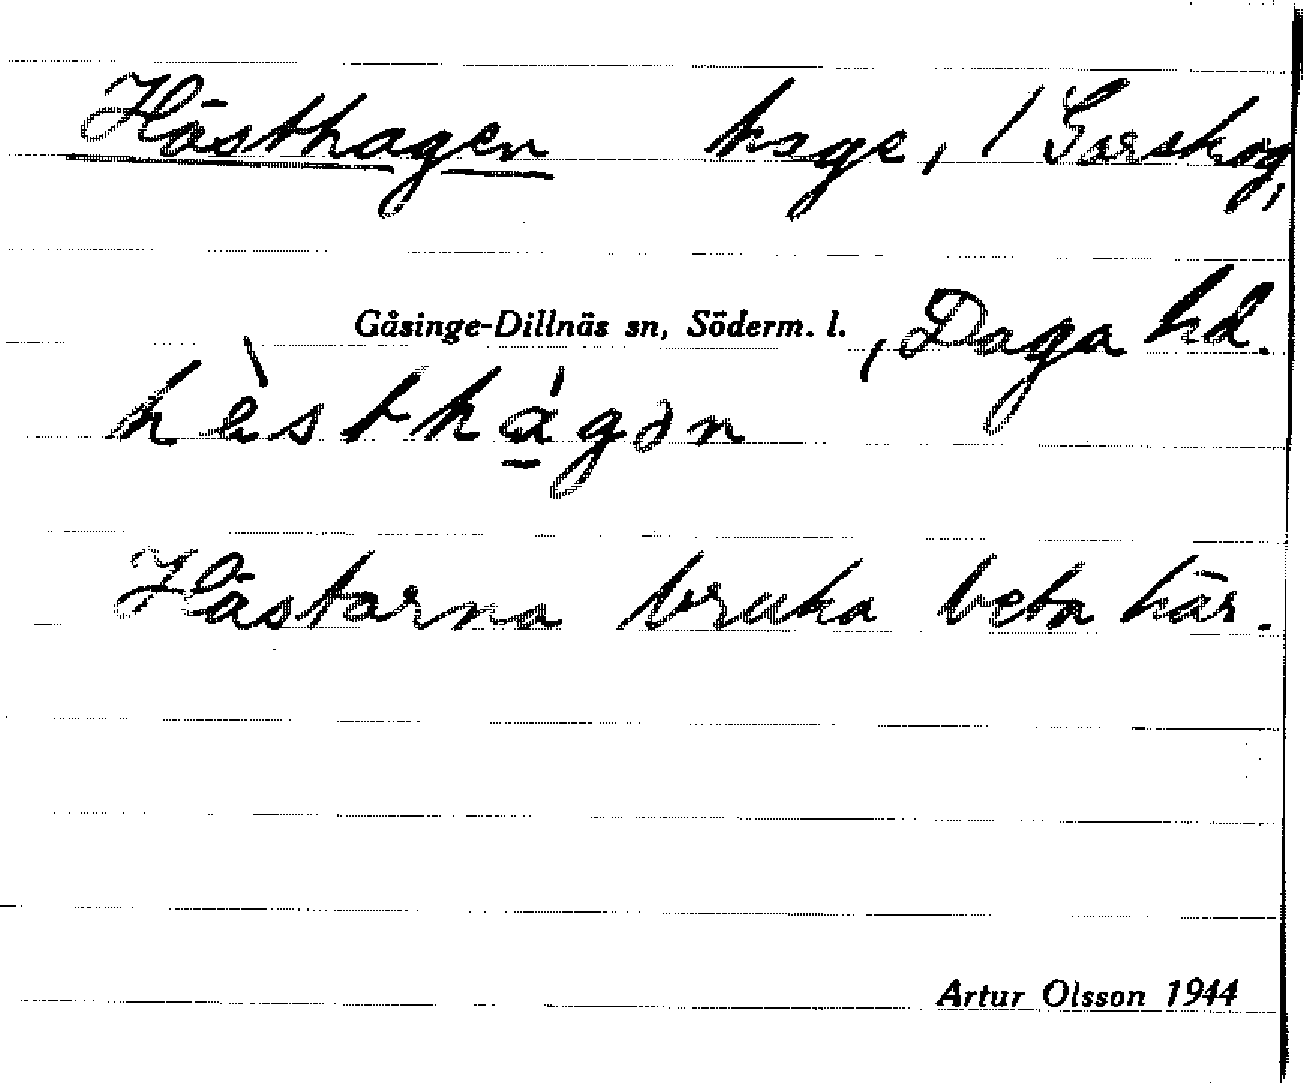 Hästhagen hage, / Garskog,
Gåsinge-Dillnäs sn, Söderm. l. , Daga hd.
hὲsthágən
Hästarna bruka beta här.
Artur Olsson 1944